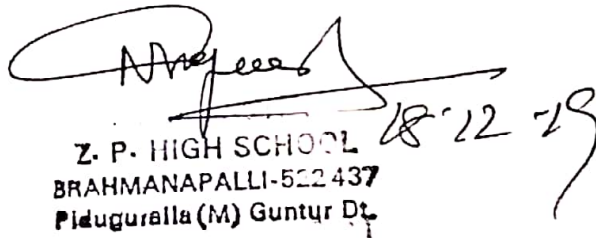 18-12-19
Z. P. HIGH SCHOOL
BRAHMANAPALLI-522 437
Piduguralla (M) Guntur Dt.